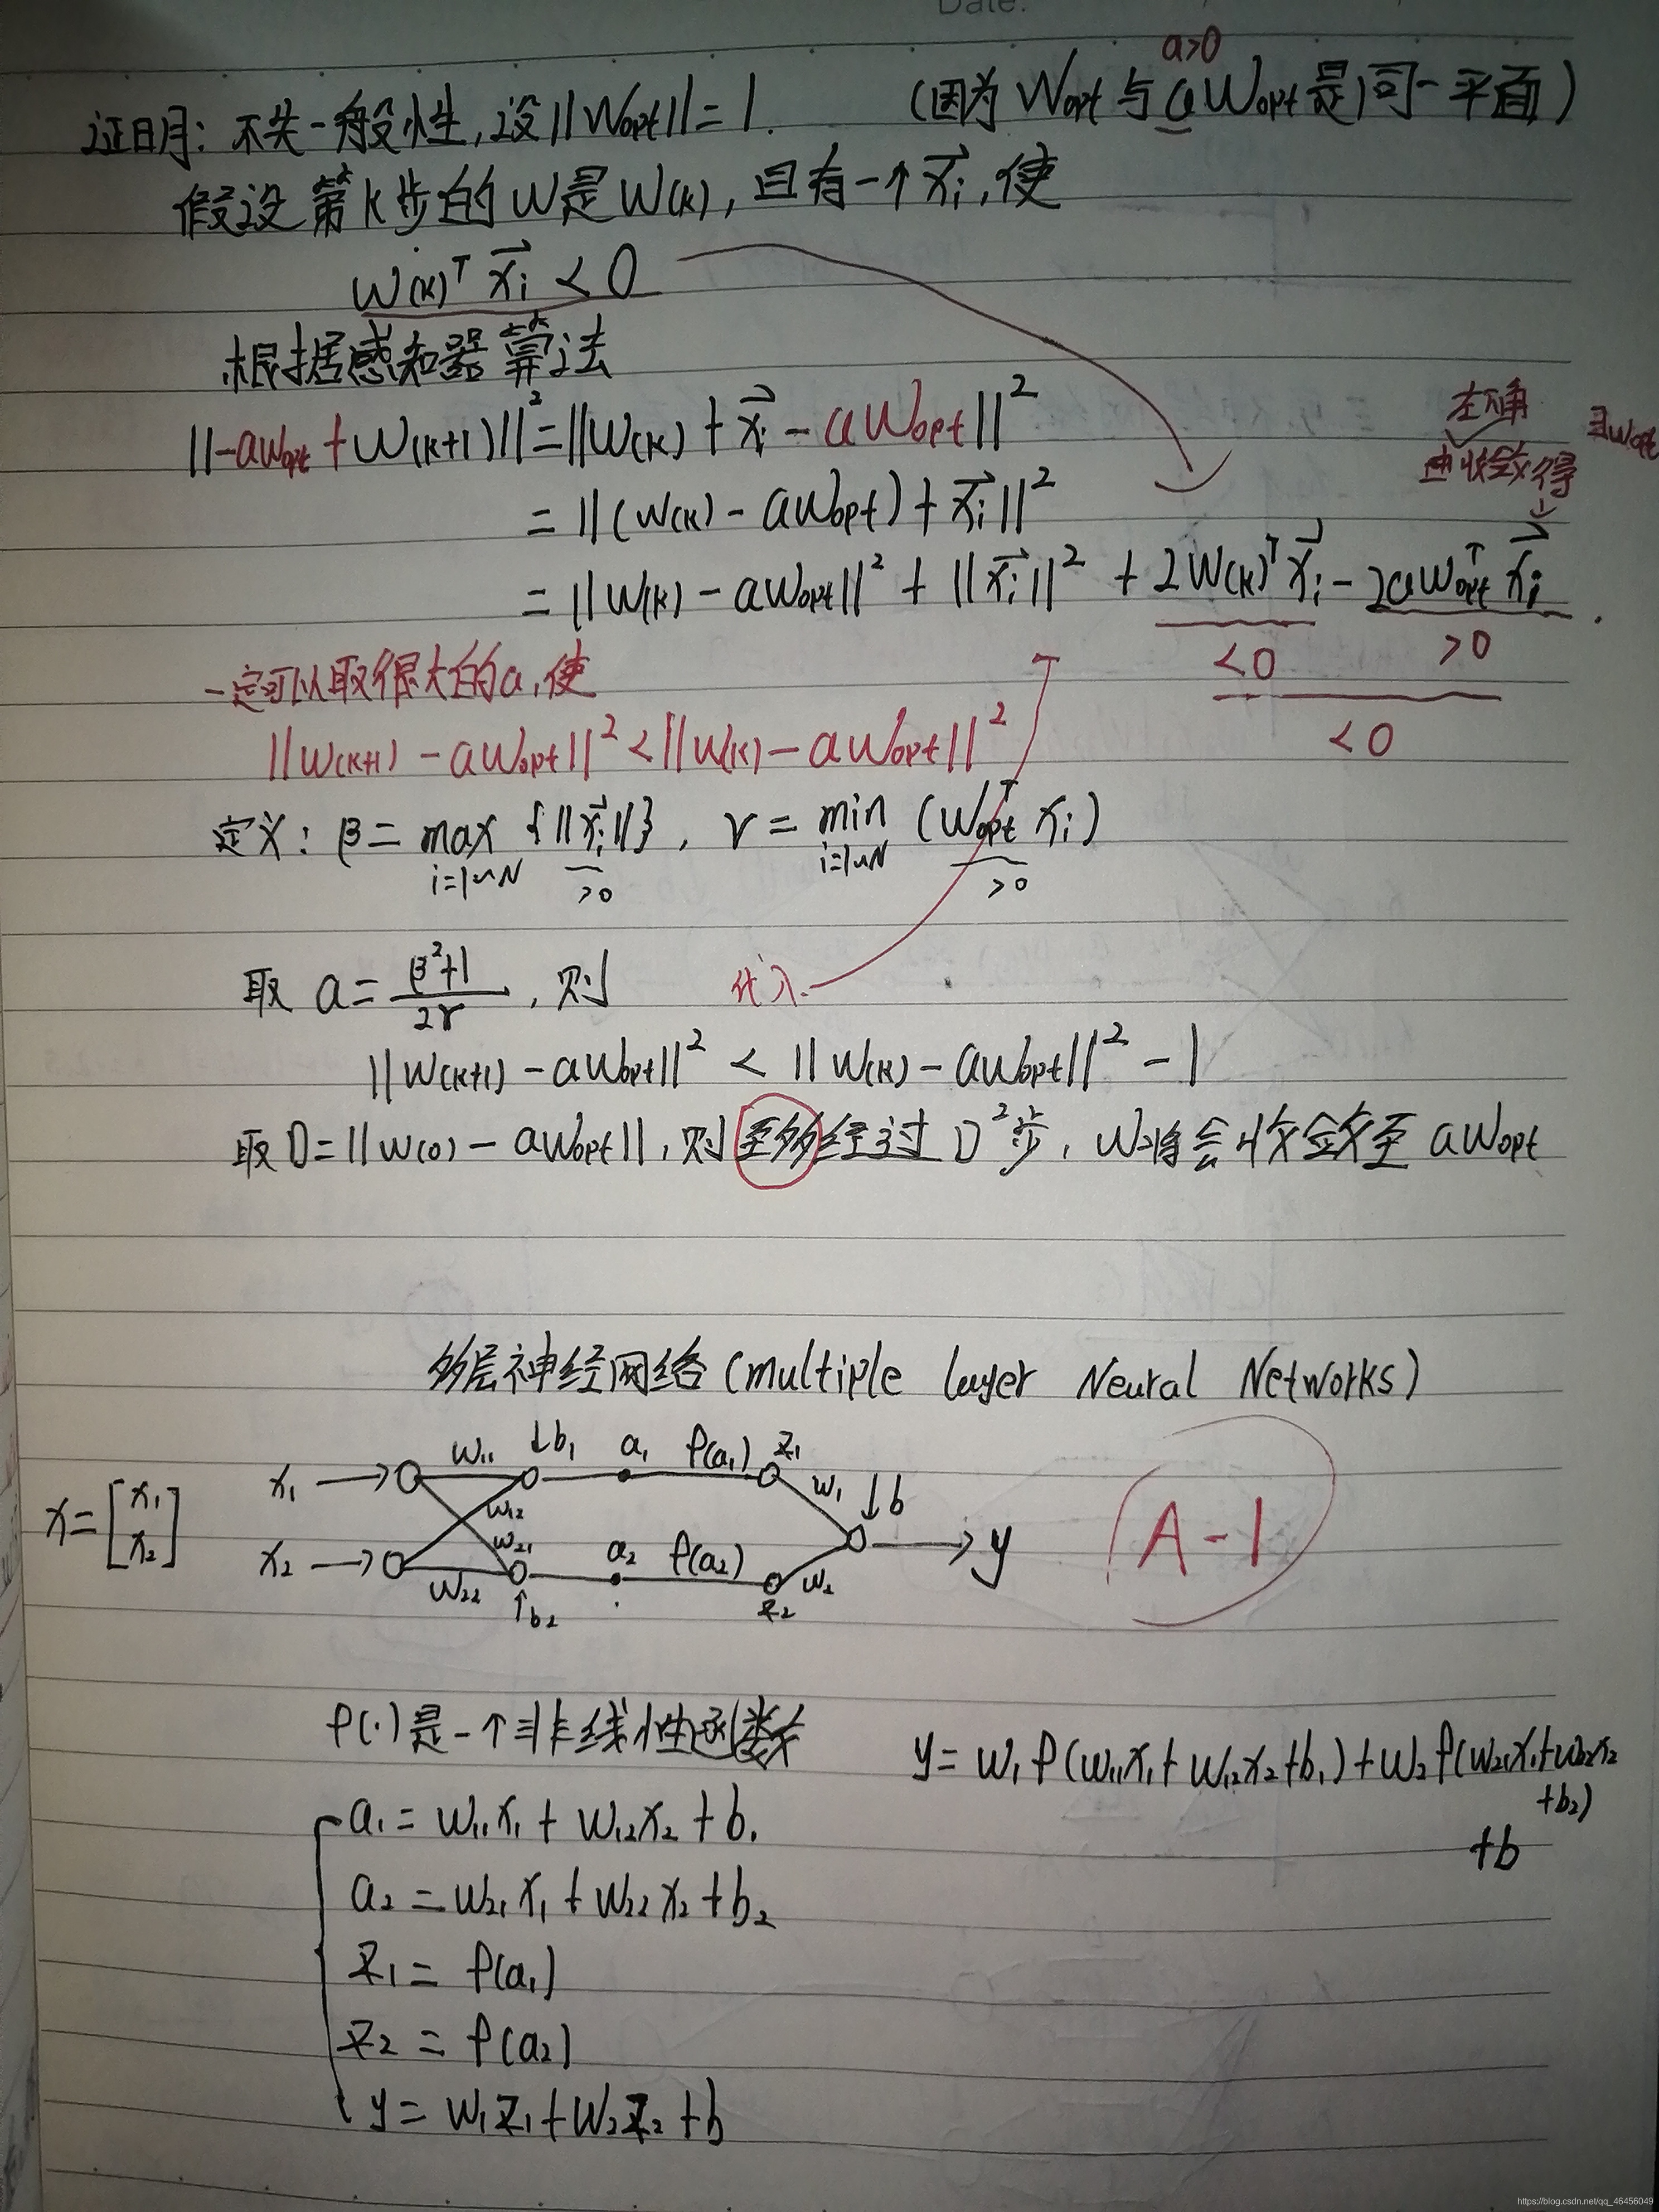 Date:
a>0
证明: 不失一般性,设||Wopt||=1. (因为 Wopt 与 aWopt 是同一平面)
假设第K步的W是W(K), 且有一个xi⃗,使
W(K)ᵀ xi⃗ < 0
根据感知器算法
左下角
由收敛得
∃Wopt
||-aWopt+W(K+1)||²=||W(K) + xi⃗ - aWopt||²
= ||(W(K) - aWopt) + xi⃗||²
= ||W(K) - aWopt||² + ||xi⃗||² + 2W(K)ᵀxi⃗ - 2aWoptᵀ xi⃗.
<0 >0
一定可以取很大的a,使
<0
||W(K+1) - aWopt||² < ||W(K) - aWopt||²
定义: β= max {||xi⃗||}, γ = min (Woptᵀ xi)
i=1~N >0 i=1~N >0
取 a= (β²+1)/2γ , 则 代入
||W(K+1) - aWopt||² < ||W(K) - aWopt||² - 1
取D=||W(0) - aWopt||, 则至多经过D²步, W将会收敛至 aWopt
多层神经网络(multiple layer Neural Networks)
x=[x₁ x₂]
x₁ → w₁₁ ↓b₁ a₁ φ(a₁) z₁ w₁ ↓b
w₁₂
w₂₁
→ y
x₂ → w₂₂ ↑b₂ a₂ φ(a₂) z₂ w₂
A-1
φ(·)是一个非线性函数
y= w₁φ(w₁₁x₁+w₁₂x₂+b₁)+w₂φ(w₂₁x₁+w₂₂x₂
+b₂)
+b
a₁= w₁₁x₁ + w₁₂x₂ + b₁
a₂ = w₂₁x₁ + w₂₂x₂ + b₂
z₁ = φ(a₁)
z₂ = φ(a₂)
y = w₁z₁+w₂z₂ +b
https://blog.csdn.net/qq_46456049